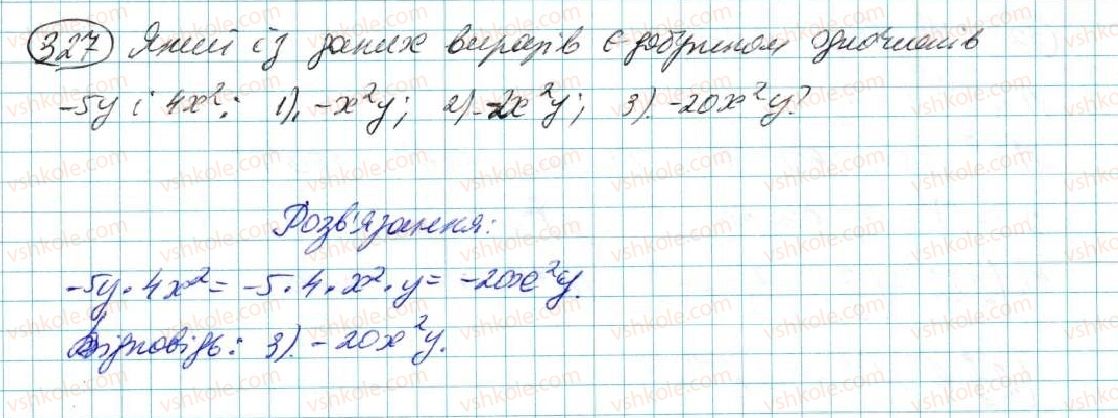 327 Який із даних виразів є добутком одночленів
-5y і 4x²: 1). -x²y; 2) -2x²y; 3). -20x²y?
Розв'язання:
-5y · 4x² = -5 · 4 · x² · y = -20x²y.
Відповідь: 3). -20x²y.